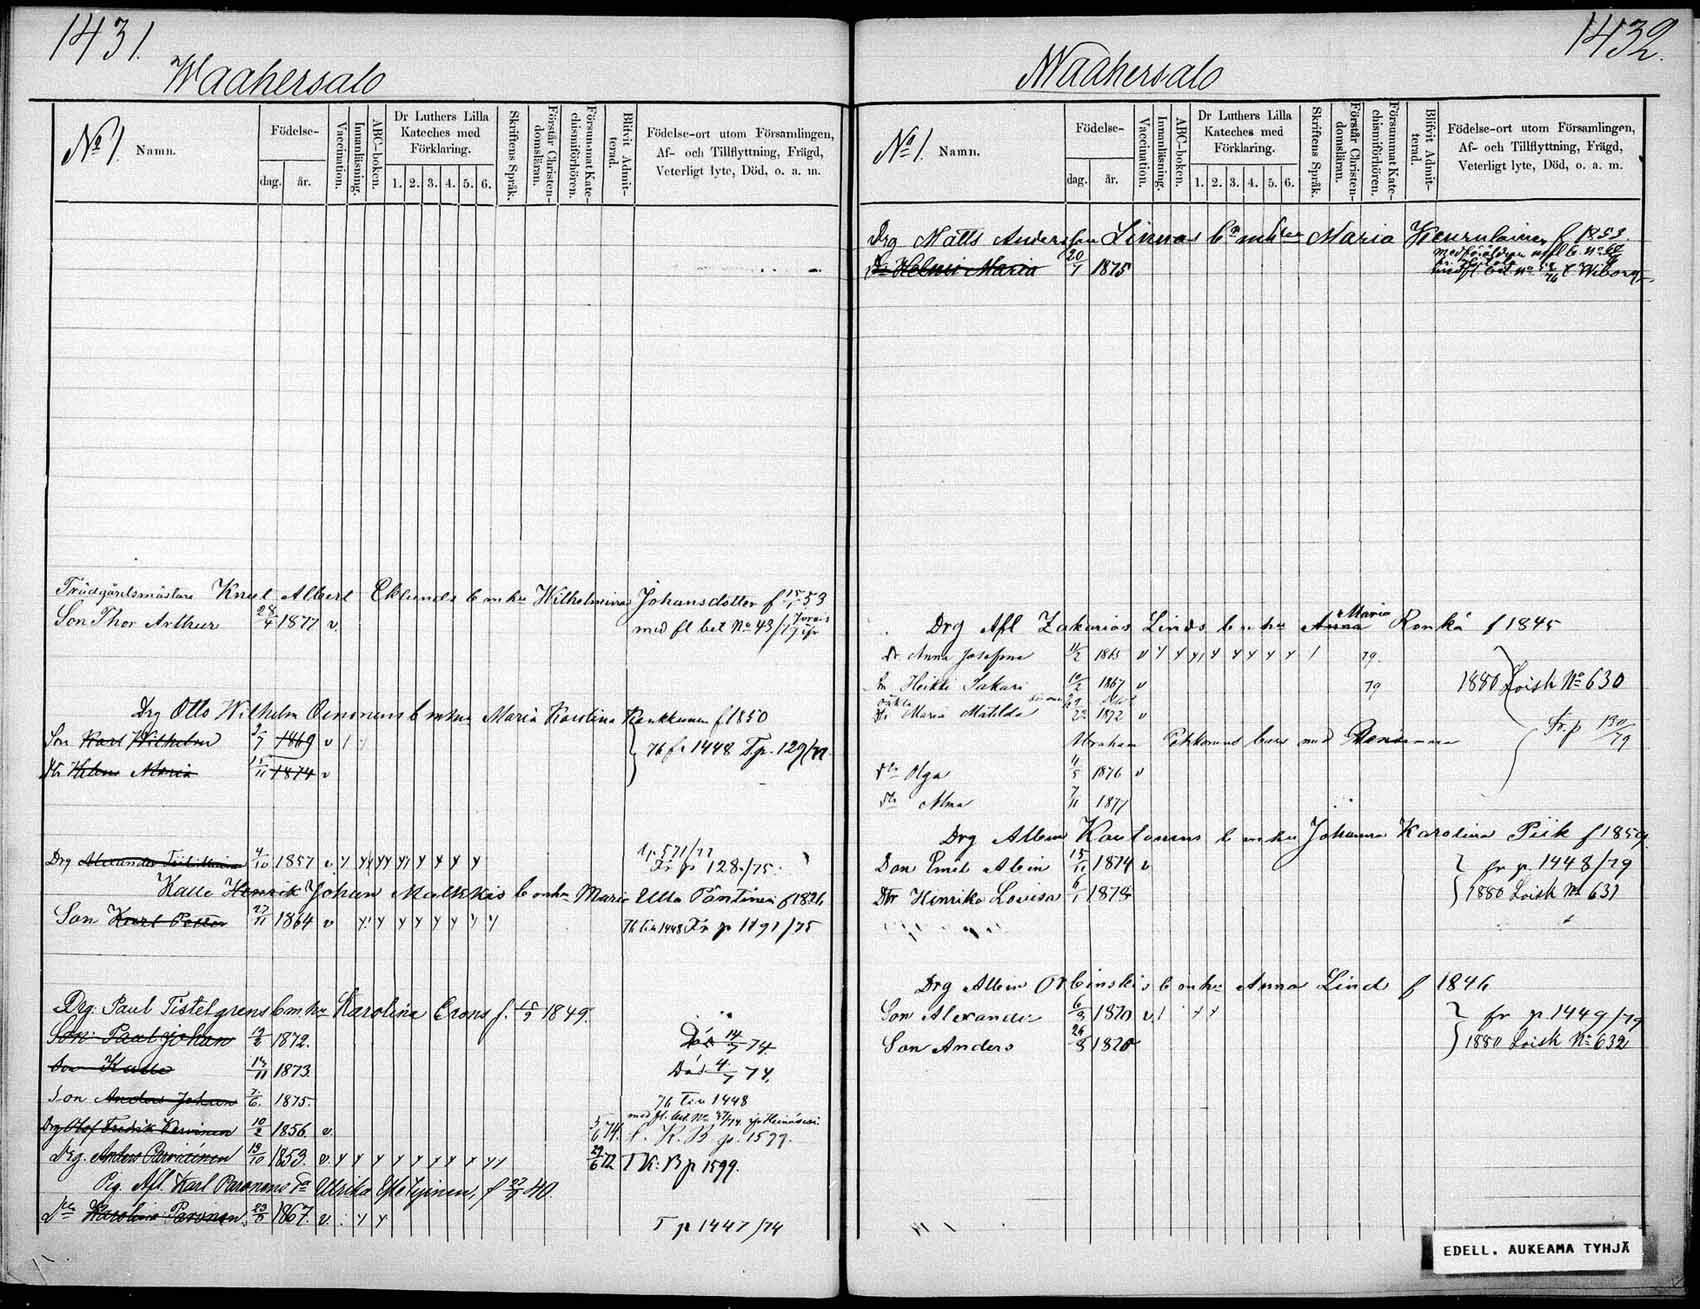 1431.
Waahersalo
No 1. Namn.
Födelse-
dag. år.
Vaccination.
Innanläsning.
ABC-boken.
Dr Luthers Lilla Kateches med Förklaring.
1. 2. 3. 4. 5. 6.
Skriftens Språk.
Förstår Christendomsläran.
Försummat Katechismiförhören.
Blifvit Admitterad.
Födelse-ort utom Församlingen,
Af- och Tillflyttning, Frägd,
Veterligt lyte, Död, o. a. m.
Trädgårdsmästare Knut Albert Eklunds b m hu Wilhelmina Johansdotter f 15/1 53
Son Thor Arthur 28/4 1877 v. med fl bet No 43/79
Drg Otto Wilhelm Oinonens b m hu Maria Karolina f 1850
Son Karl Wilhelm 2/7 1869 v 76 fr 1448 Fp. 129/77
dtr Helena Maria 15/11 1874 v
Drg Alexander 4/10 1857 v. y 1p. 571/77 Fr p 128./75
Kalle Henrik Johan b m hu Maria Ulla Pöntinen f 1826
Son Karl Petter 27/11 1864 v 76 till 1448 Fr p 1191/75
Drg. Paul Tistelgrens b m hu Karolina Erons f. 15/9 1849.
Son Paul Johan 1872. Död 14/7 74.
Son Kalle 13/11 1873. Död 4/7 74.
Son Anders Johan 7/6. 1875. 76 till 1448
Drg Olof Fredrik 10/2 1856. v. 5/6 74. f. K. B. p. 1599.
Drg. Anders Parviainen 19/10 1853. v. y y y y y y y y yy 29/6 72 T K: B p 1599.
Drg. Afl. Karl Paronens Ulrika f 22/7 40
Dtr Karolina Paronen 23/8 1867. v. y y T p 1447/74
1432.
Waahersalo
No 1. Namn.
Födelse-
dag. år.
Vaccination.
Innanläsning.
ABC-boken.
Dr Luthers Lilla Kateches med Förklaring.
1. 2. 3. 4. 5. 6.
Skriftens Språk.
Förstår Christendomsläran.
Försummat Katechismiförhören.
Blifvit Admitterad.
Födelse-ort utom Församlingen,
Af- och Tillflyttning, Frägd,
Veterligt lyte, Död, o. a. m.
Drg Matts Andersson Linnas Maria f 1853.
Dr Helmi Maria 20/7 1875 Wiborg
Drg Afl Zakarias Linds b m hu Anna Maria Ronkä f 1845
dr Anna Josefina 11/2 1865 v y y y y y y y y 1 79.
Sn Heikki Sakari 10/2 1867 v 79 1880 Loisk No 630
dtr Maria Matilda 1872 v
Abraham
Fr. p 130/79
dtr Olga 11/5 1876 v
dtr Alma 7/11 1877
Drg Albin Kautonens b m hu Johanna Karolina Piik f 1859.
Son Emil Albin 15/11 1874 v fr p. 1448/79
Dtr Henrika Lovisa 6/1 1878 1880 Loisk No 631
Drg Albin Orbinskis b m hu Anna Lind f 1846
Son Alexander 6/3 1870 v. 1 y y fr p. 1449/79
Son Anders 26/8 1820 1880 Loisk No 632
EDELL. AUKEAMA TYHJÄ